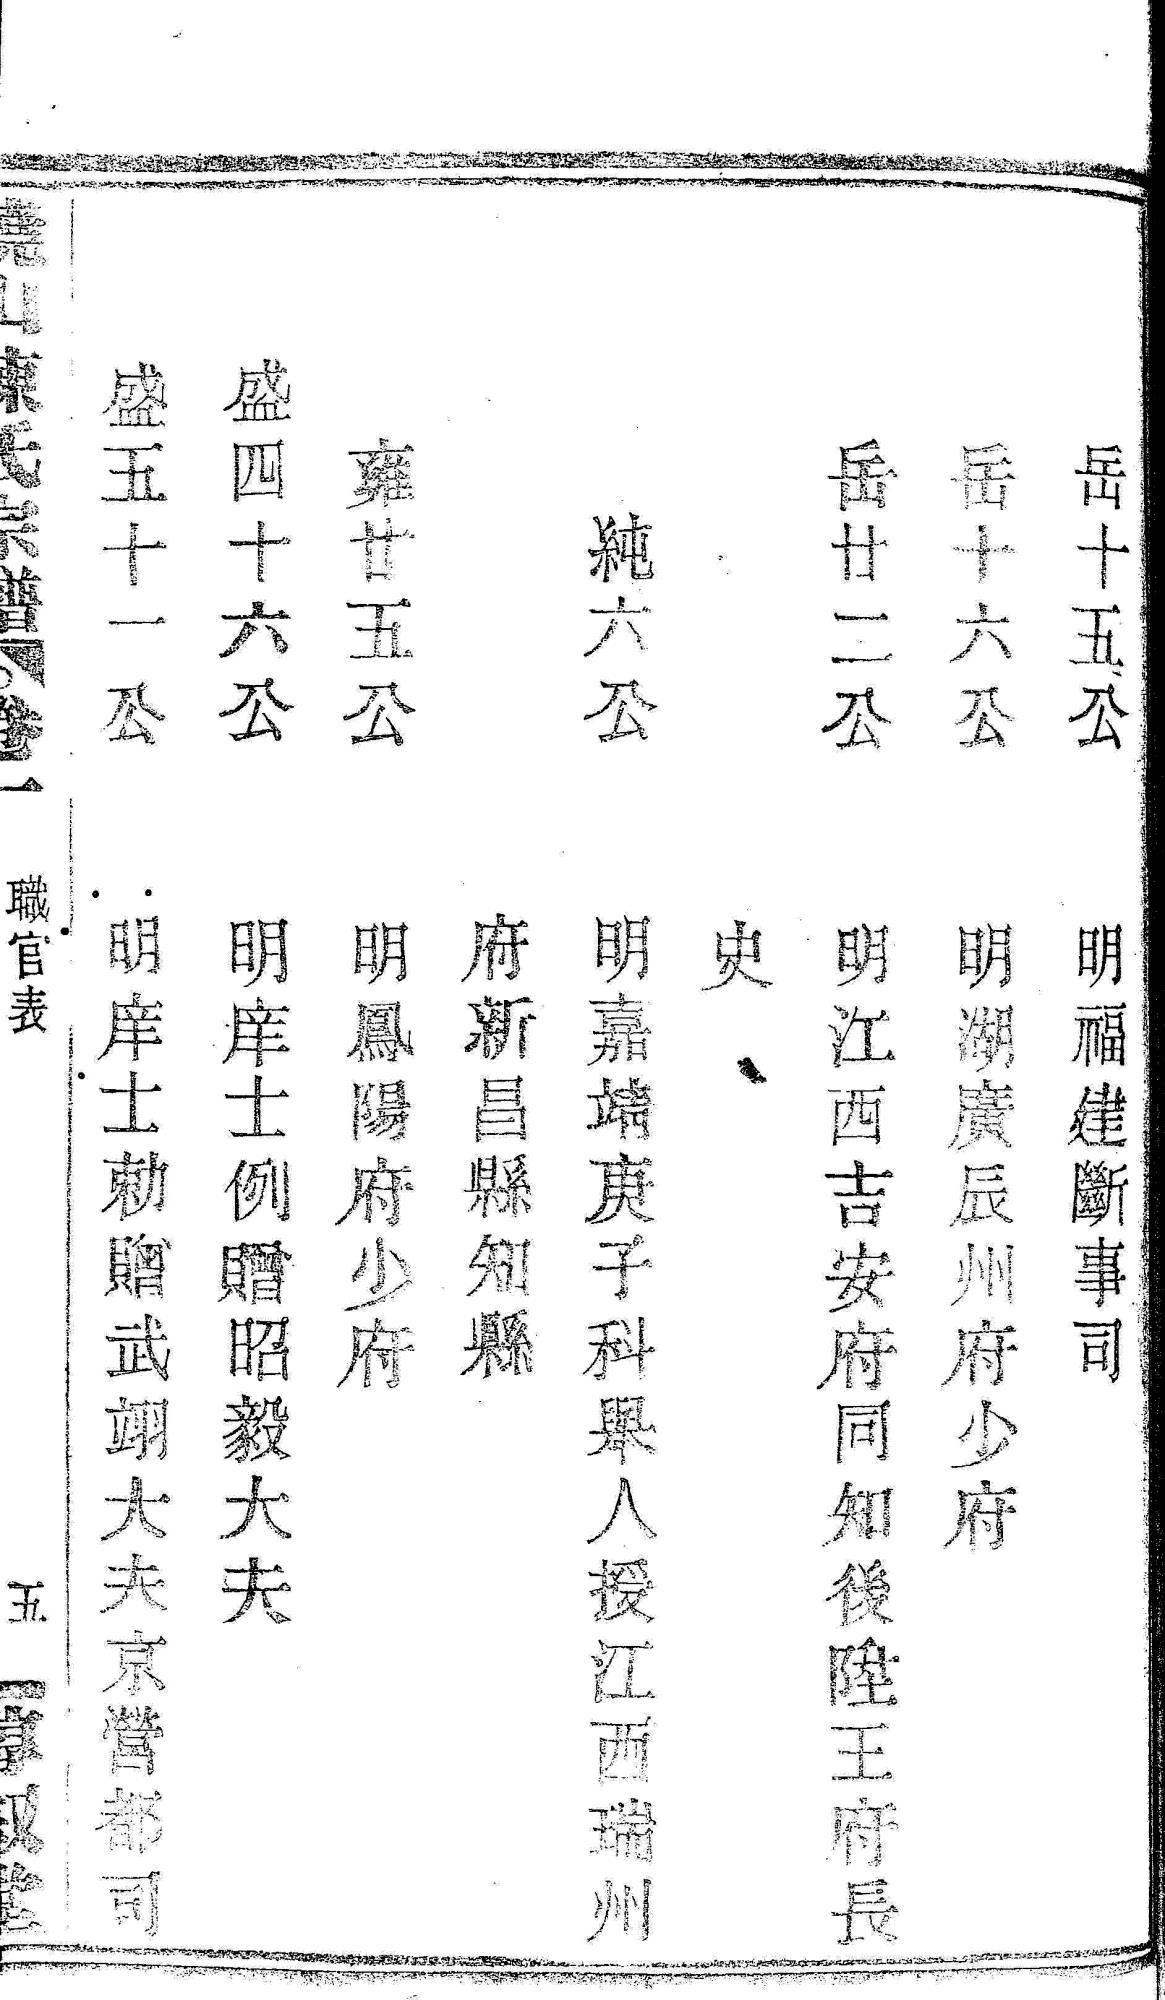 岳十五公　明福建斷事司
岳十六公　明湖廣辰州府少府
岳廿二公　明江西吉安府同知後陞王府長
史
純六公　明嘉靖庚子科舉人授江西瑞州
府新昌縣知縣
雍廿五公　明鳳陽府少府
盛四十六公　明庠士例贈昭毅大夫
盛五十一公　明庠士勅贈武翊大夫京營都司
山陳氏宗譜　卷一　職官表　五　敘堂